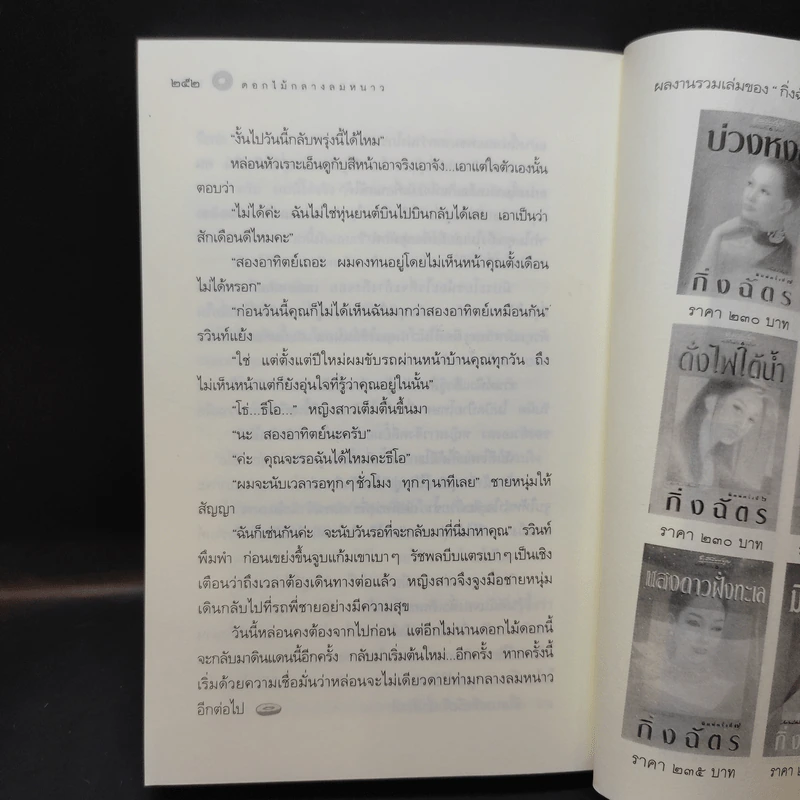 ๒๕๒ ดอกไม้กลางลมหนาว
“งั้นไปวันนี้กลับพรุ่งนี้ได้ไหม”
หล่อนหัวเราะเอ็นดูกับสีหน้าเอาจริงเอาจัง...เอาแต่ใจตัวเองนั้น
ตอบว่า
“ไม่ได้ค่ะ ฉันไม่ใช่หุ่นยนต์บินไปบินกลับได้เลย เอาเป็นว่า
สักเดือนดีไหมคะ”
“สองอาทิตย์เถอะ ผมคงทนอยู่โดยไม่เห็นหน้าคุณตั้งเดือน
ไม่ได้หรอก”
“ก่อนวันนี้คุณก็ไม่ได้เห็นฉันมากว่าสองอาทิตย์เหมือนกัน”
รวินท์แย้ง
“ใช่ แต่ตั้งแต่ปีใหม่ผมขับรถผ่านหน้าบ้านคุณทุกวัน ถึง
ไม่เห็นหน้าแต่ก็ยังอุ่นใจที่รู้ว่าคุณอยู่ในนั้น”
“โธ่...ธีโอ...” หญิงสาวเต็มตื้นขึ้นมา
“นะ สองอาทิตย์นะครับ”
“ค่ะ คุณจะรอฉันได้ไหมคะธีโอ”
“ผมจะนับเวลารอทุกๆชั่วโมง ทุกๆนาทีเลย” ชายหนุ่มให้
สัญญา
“ฉันก็เช่นกันค่ะ จะนับวันรอที่จะกลับมาที่นี่มาหาคุณ” รวินท์
พึมพำ ก่อนเขย่งขึ้นจูบแก้มเขาเบาๆ รัชพลบีบแตรเบาๆเป็นเชิง
เตือนว่าถึงเวลาต้องเดินทางต่อแล้ว หญิงสาวจึงจูงมือชายหนุ่ม
เดินกลับไปที่รถพี่ชายอย่างมีความสุข
วันนี้หล่อนคงต้องจากไปก่อน แต่อีกไม่นานดอกไม้ดอกนี้
จะกลับมาดินแดนนี้อีกครั้ง กลับมาเริ่มต้นใหม่...อีกครั้ง หากครั้งนี้
เริ่มด้วยความเชื่อมั่นว่าหล่อนจะไม่เดียวดายท่ามกลางลมหนาว
อีกต่อไป
ผลงานรวมเล่มของ “กิ่งฉั
บ่วงหง
กิ่งฉัตร
ราคา ๒๓๐ บาท
ดั่งไฟใต้น้ำ
กิ่งฉัตร
ราคา ๒๓๐ บาท
แสงดาวฝั่งทะเล
กิ่งฉัตร
ราคา ๒๓๕ บาท
กิ่งฉั
ราคา